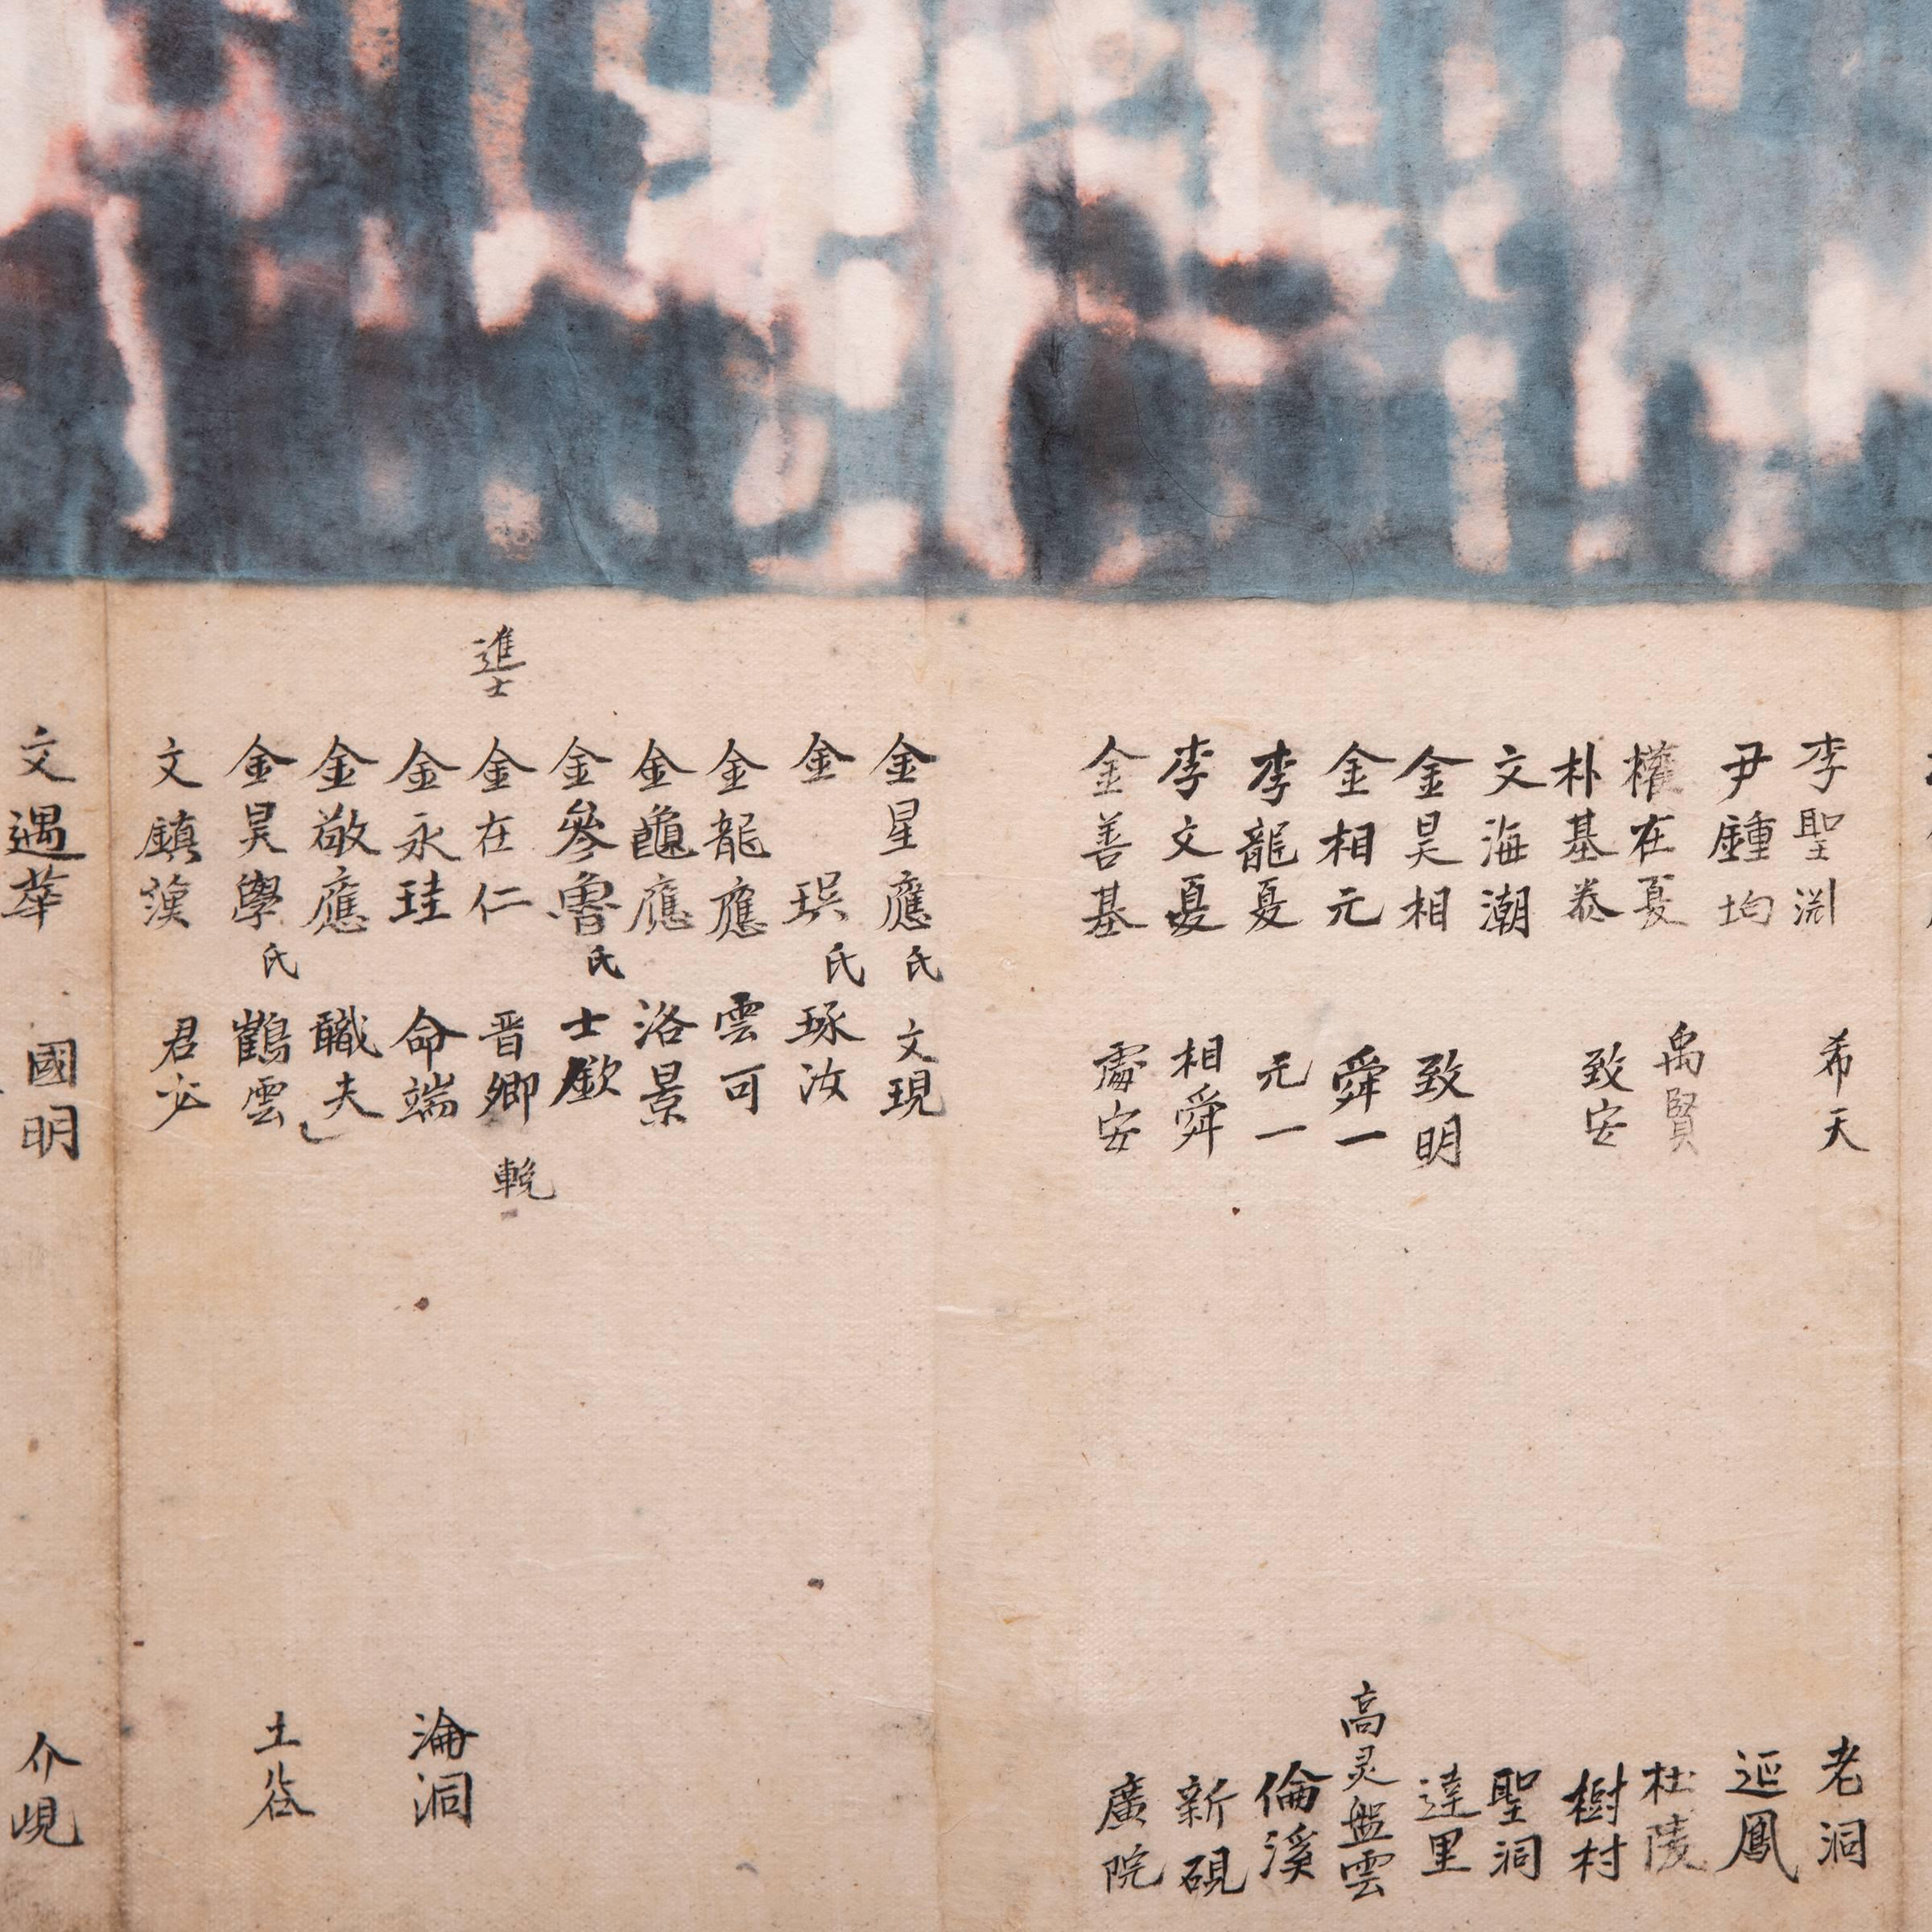 李聖渊 希天 老洞
尹鍾均 延鳳
權在夏 禹賢 杜陵
朴基泰 致安 樹村
文海潮 聖洞
金昊相 致明 達里
金相元 舜一 高灵盤雲
李龍夏 元一 倫溪
李文夏 相舜 新硯
金善基 處安 廣院
金星應氏 文現
金珙氏 琢汝
金龍應 雲可
金龜應 洛景
金參魯氏 士欽
進士 金在仁 晋卿 輓
金永珪 命端 淪洞
金敬應 職夫
金昊學氏 鶴雲 土谷
文鎮漢 君必
文遇華 國明 介峴